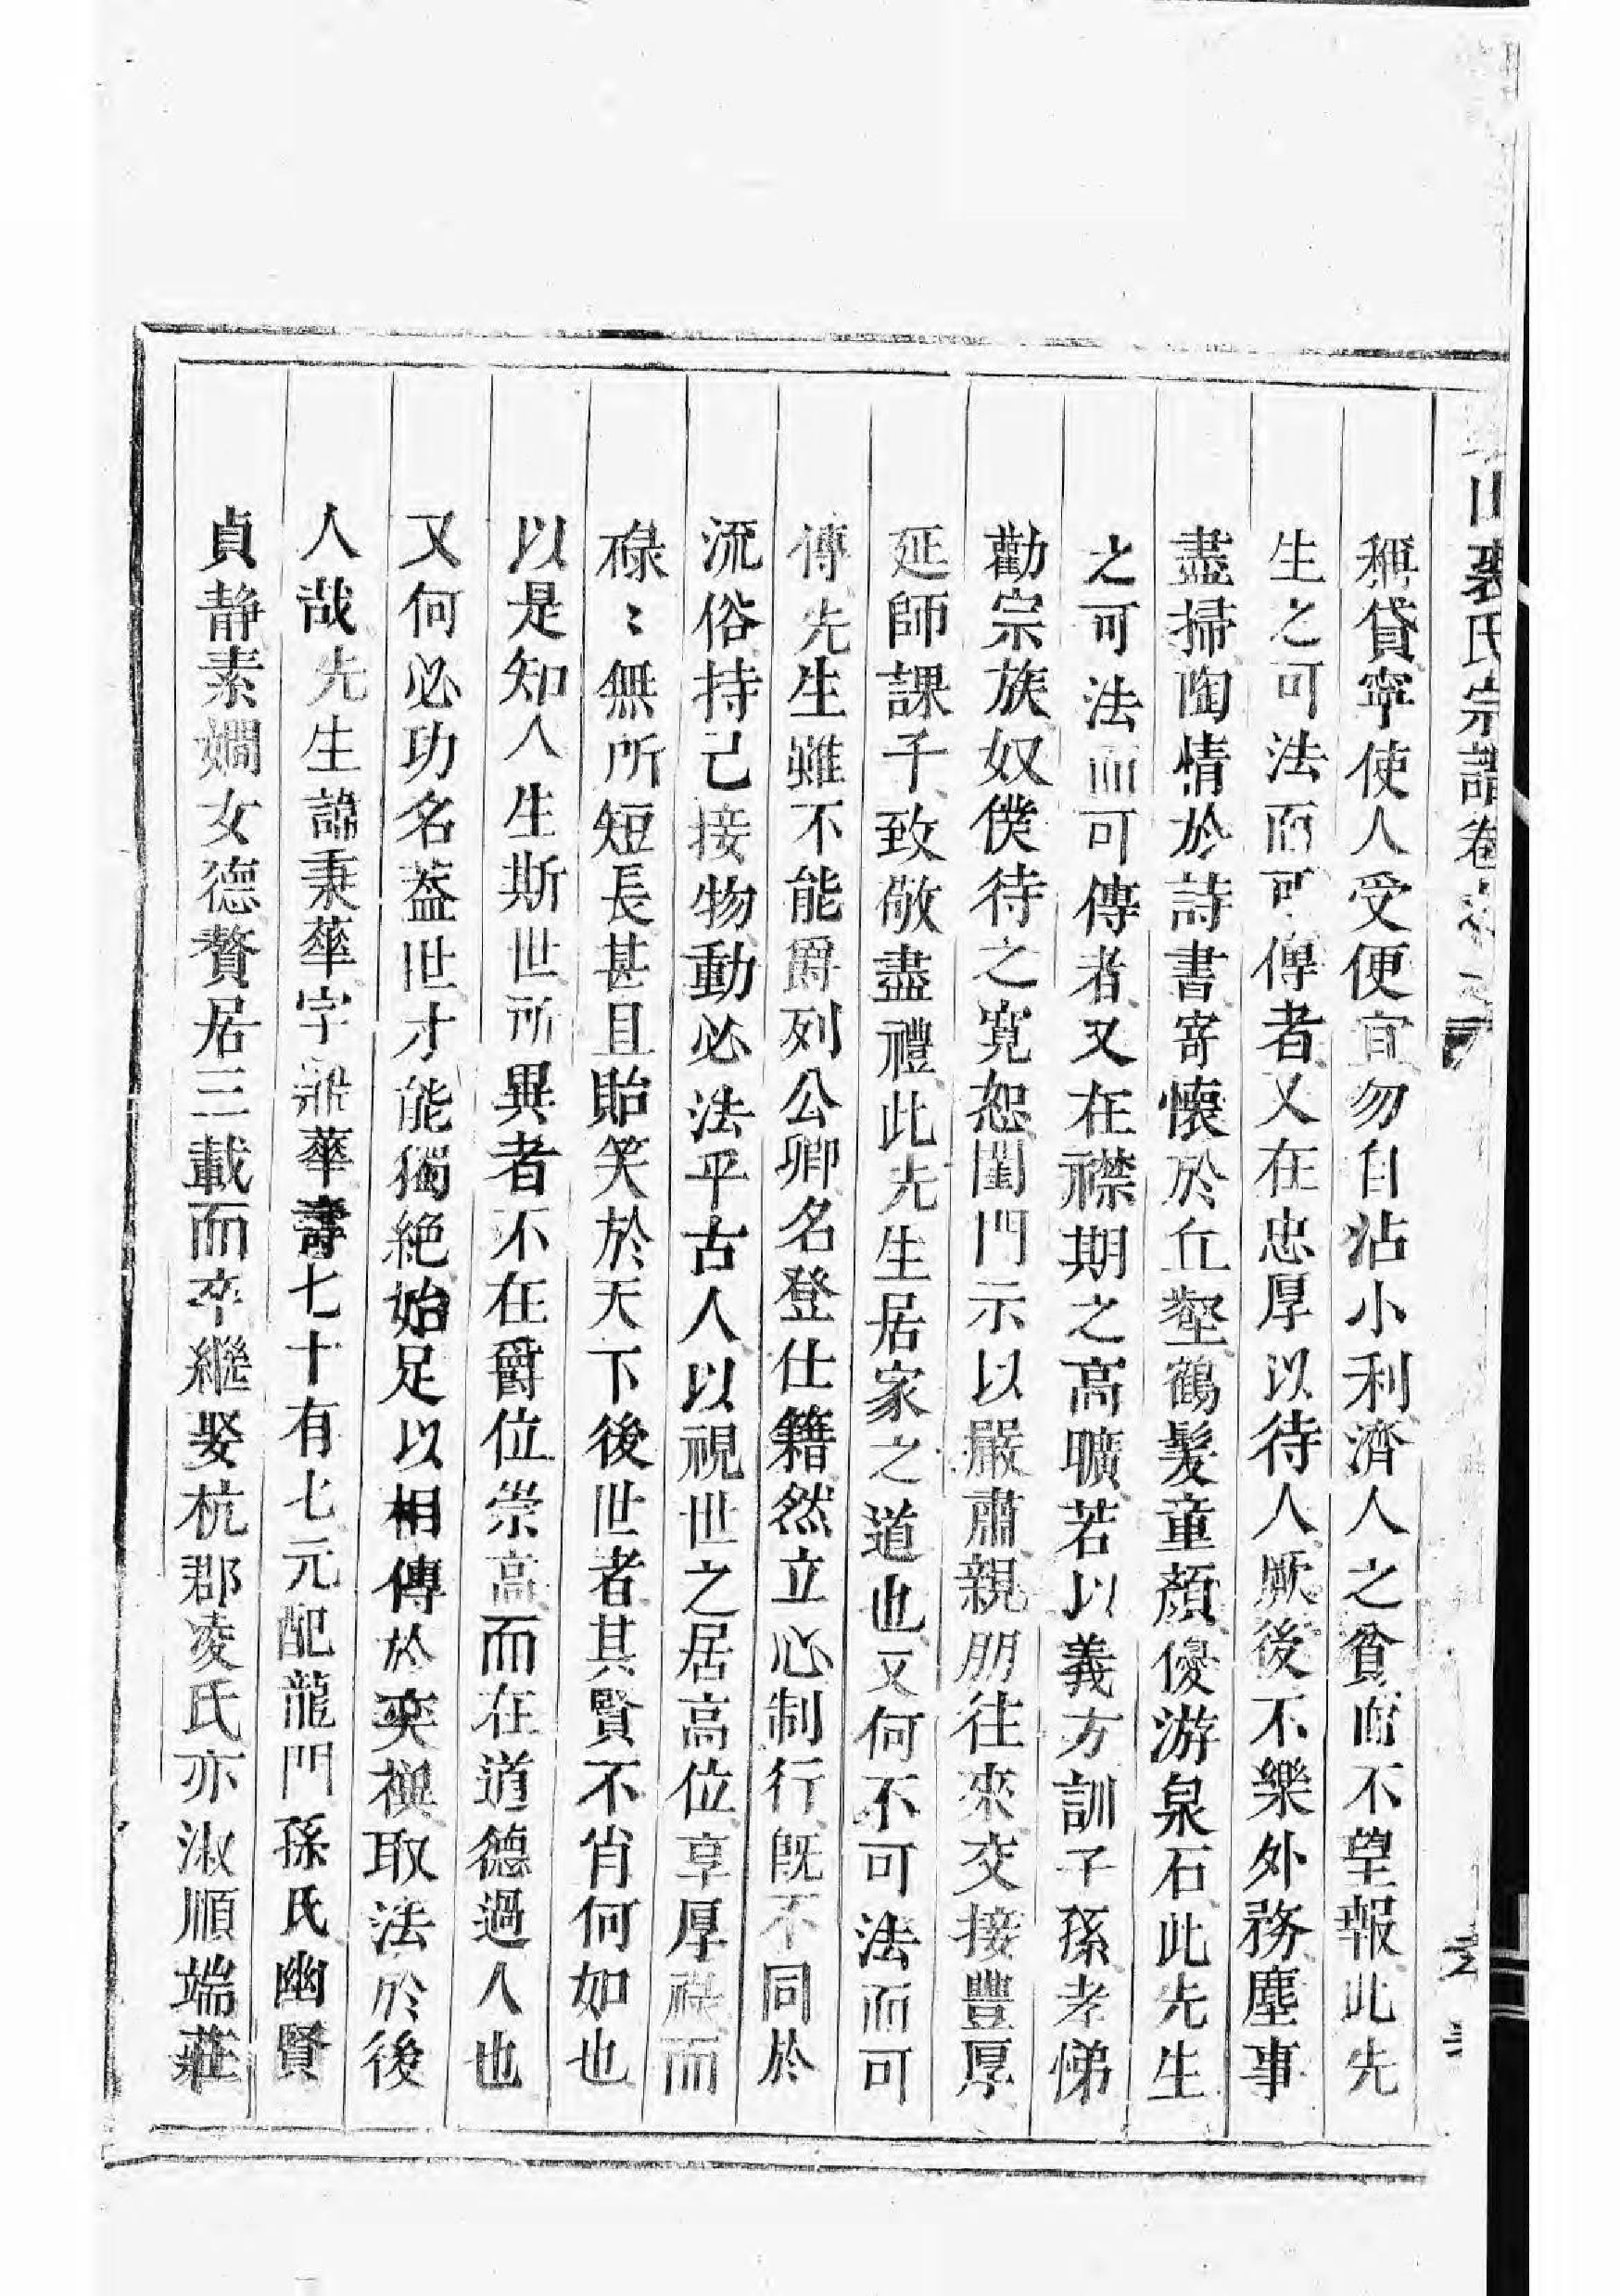 山裘氏宗譜卷之
稱貸寧使人受便宜勿自沾小利濟人之貧而不望報此先
生之可法而可傳者又在忠厚以待人厥後不樂外務塵事
盡掃陶情於詩書寄懷於丘壑鶴髮童顏優游泉石此先生
之可法而可傳者又在襟期之高曠若以義方訓子孫孝悌
勸宗族奴僕待之寬恕閨門示以嚴肅親朋往來交接豐厚
延師課子致敬盡禮此先生居家之道也又何不可法而可
傳先生雖不能爵列公卿名登仕籍然立心制行既不同於
流俗持己接物動必法乎古人以視世之居高位享厚祿而
碌〻無所短長甚且貽笑於天下後世者其賢不肖何如也
以是知人生斯世所異者不在爵位崇高而在道德過人也
又何必功名蓋世才能獨絕始足以相傳於奕禩取法於後
人哉先生諱秉華字華壽七十有七元配龍門孫氏幽賢
貞静素嫻女德贅居三載而卒繼娶杭郡凌氏亦淑順端莊